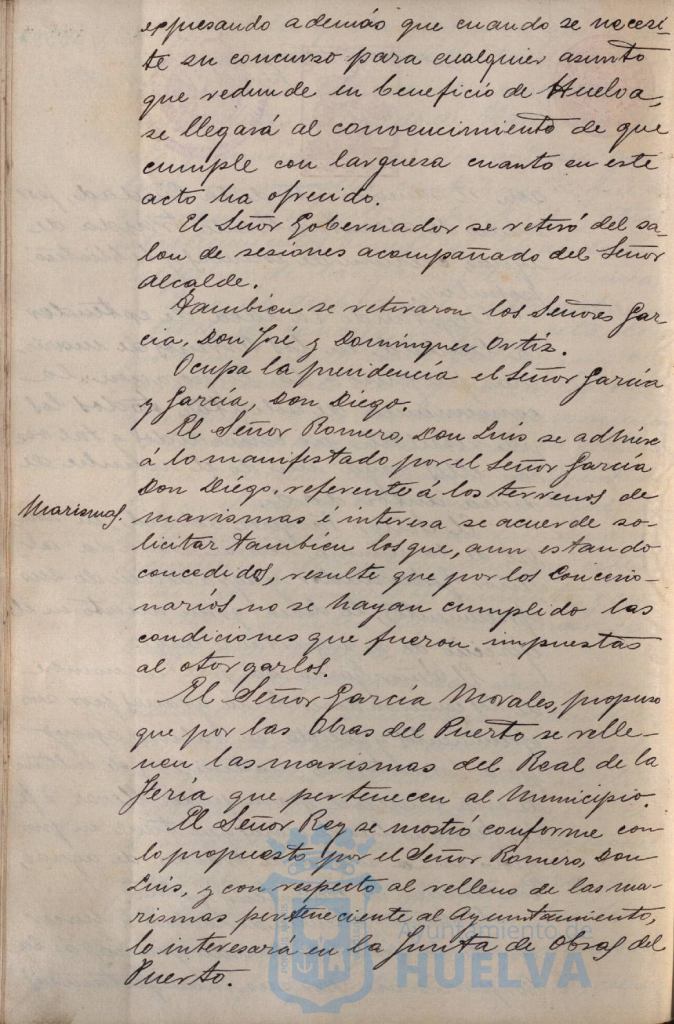 expresando además que cuando se necesi-
te su concurso para cualquier asunto
que redunde en beneficio de Huelva,
se llegará al convencimiento de que
cumple con larguesa cuanto en este
acto ha ofrecido.
El Señor Gobernador se retiró del sa-
lon de sesiones acompañado del Señor
Alcalde.
Tambien se retiraron los Señores Gar-
cia, Don José y Dominguez Ortíz.
Ocupa la presidencia el Señor García
y García, Don Diego.
El Señor Romero, Don Luis se adhiere
á lo manifestado por el Señor García
Don Diégo, referente á los terrenos de
Marismas.
marismas é interesa se acuerde so-
licitar tambien los que, aun estando
concedidos, resulte que por los concesio-
narios no se hayan cumplido las
condiciones que fueron impuestas
al otorgarlos.
El Señor García Morales, propuso
que por las Obras del Puerto se relle-
nen las marismas del Real de la
Feria que pertenecen al Municipio.
El Señor Rey se mostró conforme con
lo propuesto por el Señor Romero, Don
Luis, y con respecto al relleno de las ma-
rismas perteneciente al Ayuntamiento,
lo interesará en la Junta de Obras del
Puerto.
Ayuntamiento de
HUELVA